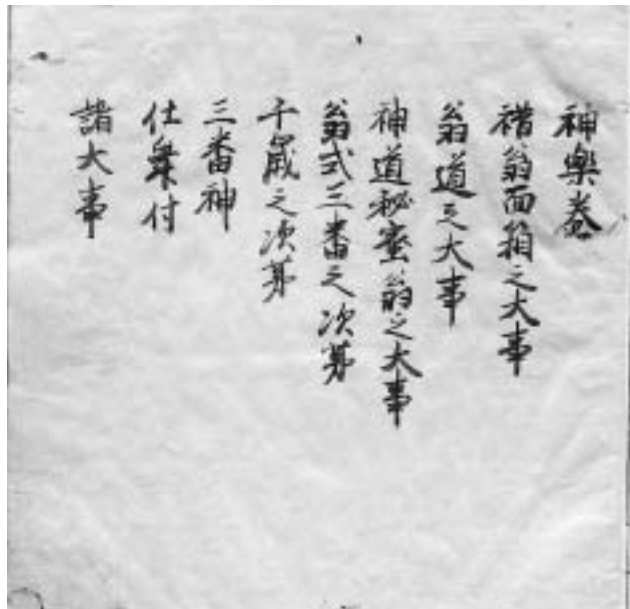 神樂巻
翁面箱之大事
翁道之大事
神道秘密翁之大事
翁式三番之次第
千歳之次第
三番神
仕舞付
諸大事